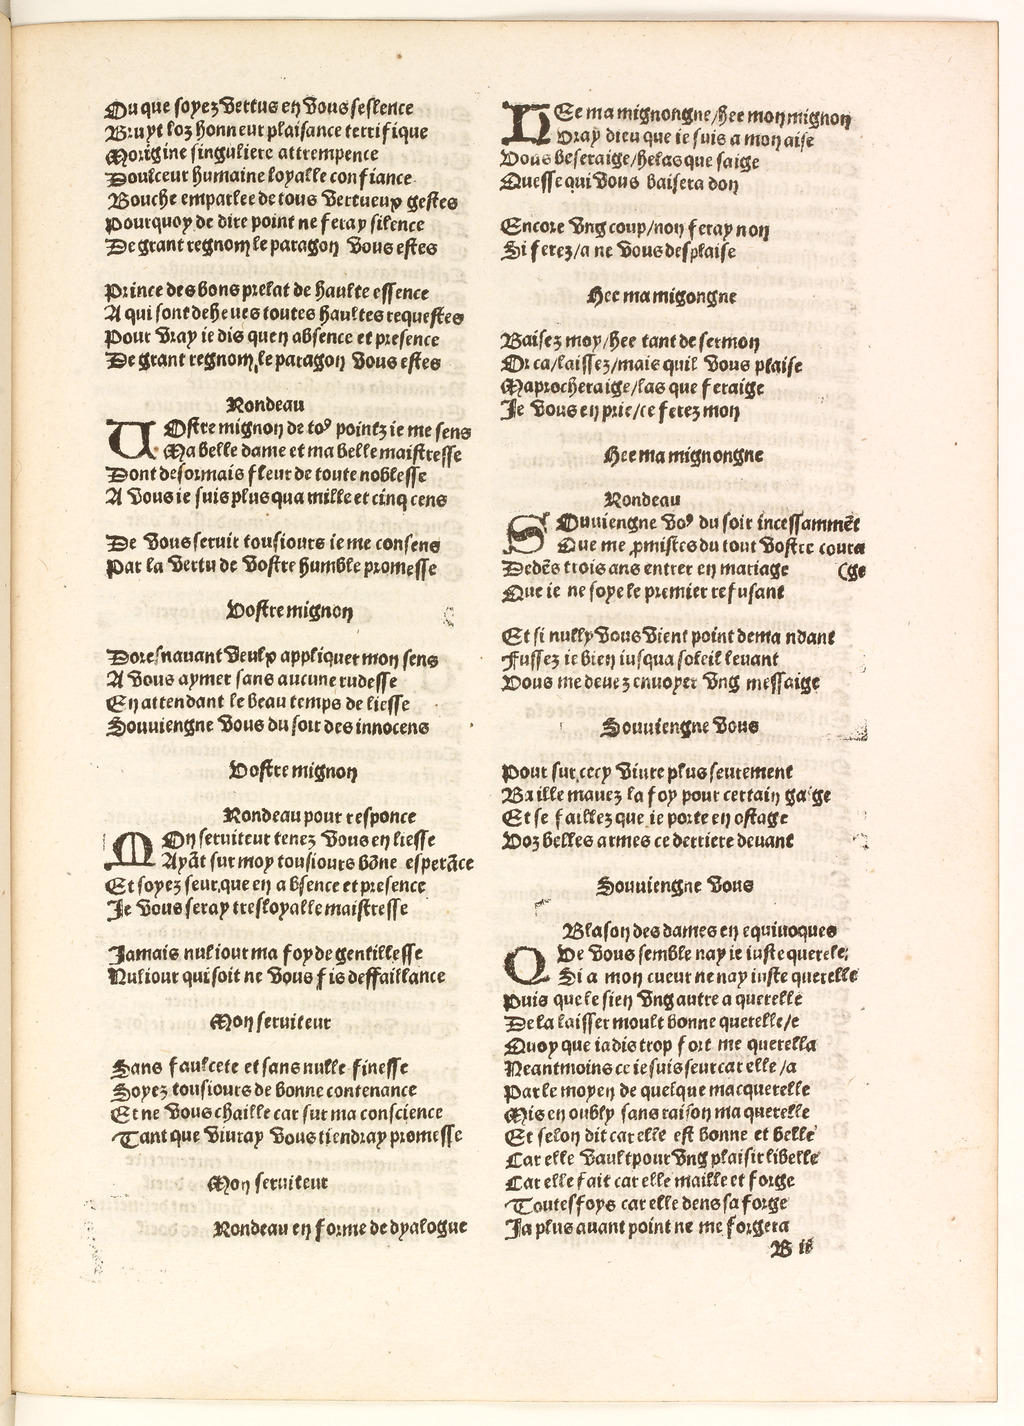 Ou que soyez vertus en vous seslence
Bruyt loz honneur plaisance terrifique
Morigine singuliere attrempence
Doulceur humaine loyalle confiance
Bouche emparlee de tous vertueux gestes
Pourquoy de dire point ne feray silence
De grant regnom le paragon vous estes
Prince des bons prelat de haulte essence
A qui sont deheues toutes haultes requestes
Pour vray ie dis quen absence et presence
De grant regnom, le paragon vous estes
Rondeau
VOstre mignon de to⁹ pointz ie me sens
Ma belle dame et ma belle maistresse
Dont desormais fleur de toute noblesse
A vous ie suis plus qua mille et cinq cens
De vous seruir tousiours ie me consens
Par la vertu de vostre humble promesse
Vostre mignon
Doresnauant veulx appliquer mon sens
A vous aymer sans aucune rudesse
En attendant le beau temps de liesse
Souuiengne vous du soir des innocens
Vostre mignon
Rondeau pour responce
MOn seruiteur tenez vous en liesse
Ayāt sur moy tousiours bōne esperāce
Et soyez seur, que en absence et presence
Je vous seray tresloyalle maistresse
Jamais nul iour ma foy de gentillesse
Nul iour qui soit ne vous fis deffaillance
Mon seruiteur
Sans faulcete et sans nulle finesse
Soyez tousiours de bonne contenance
Et ne vous chaille car sur ma conscience
Tant que viuray vous tiendray promesse
Mon seruiteur
Rondeau en forme de dyalogue
HEe ma mignongne/hee mon mignon
Vray dieu que ie suis a mon aise
Vous beseraige/helas que saige
Quesse qui vous baisera don
Encore vng coup/non feray non
Si ferez/a ne vous desplaise
Hee ma migongne
Baisez moy/hee tant de sermon
Or ca/laissez/mais quil vous plaise
Maprocheraige/las que feraige
Je vous en prie/ce ferez mon
Hee ma mignongne
Rondeau
SOuuiengne vo⁹ du soir incessammēt
Que me ꝓmistes du tout vostre coura
Dedēs trois ans entrer en mariage (ge
Que ie ne soye le premier refusant
Et si nully vous vient point demandant
Fussez ie bien iusqua soleil leuant
Vous me deuez enuoyer vng messaige
Souuiengne vous
Pour sur cecy viure plus seurement
Baille mauez la foy pour certain gaige
Et se faillez que ie porte en ostage
Voz belles armes ce derriere deuant
Souuiengne vous
Blason des dames en equiuoques
QUe vous semble nay ie iuste querele,
Si a mon cueur ne nay iuste querelle
Puis que le sien vng autre a querelle
De la laisser moult bonne querelle/e
Quoy que iadis trop fort me querella
Neantmoins ce ie suis seur car elle/a
Par le moyen de quelque macquerelle
Mis en oubly sans raison ma querelle
Et selon dit car elle est bonne et belle
Car elle vault pour vng plaisir libelle
Car elle fait car elle maille et forge
Toutesfoys car elle dens sa forge
Ja plus auant point ne me forgera
B ii